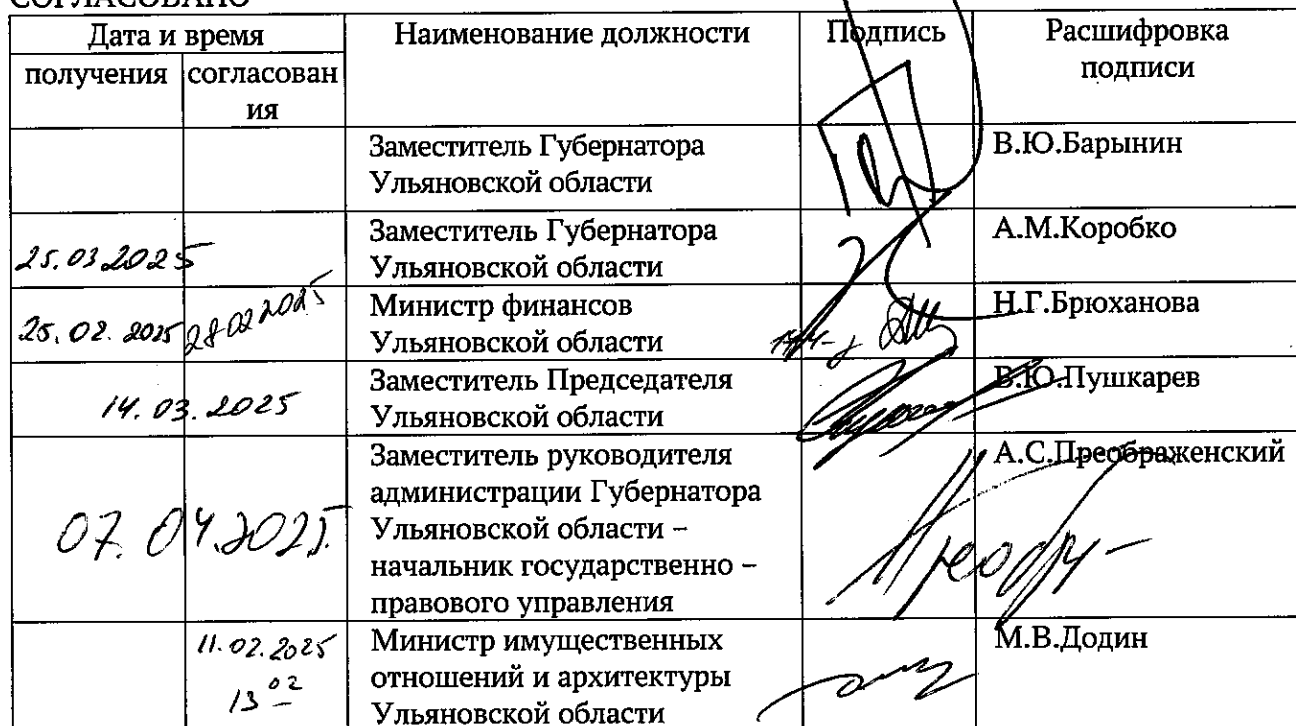 СОГЛАСОВАНО
Дата и время
Наименование должности
Подпись
Расшифровка
подписи
получения
согласован
ия
Заместитель Губернатора
Ульяновской области
В.Ю.Барынин
25.03.2025
Заместитель Губернатора
Ульяновской области
А.М.Коробко
25.02.2025
28 02 2025
Министр финансов
Ульяновской области
Н.Г.Брюханова
14.03.2025
Заместитель Председателя
Ульяновской области
В.Ю.Пушкарев
07.04.2025.
Заместитель руководителя
администрации Губернатора
Ульяновской области –
начальник государственно –
правового управления
А.С.Преображенский
11.02.2025
13 02
Министр имущественных
отношений и архитектуры
Ульяновской области
М.В.Додин